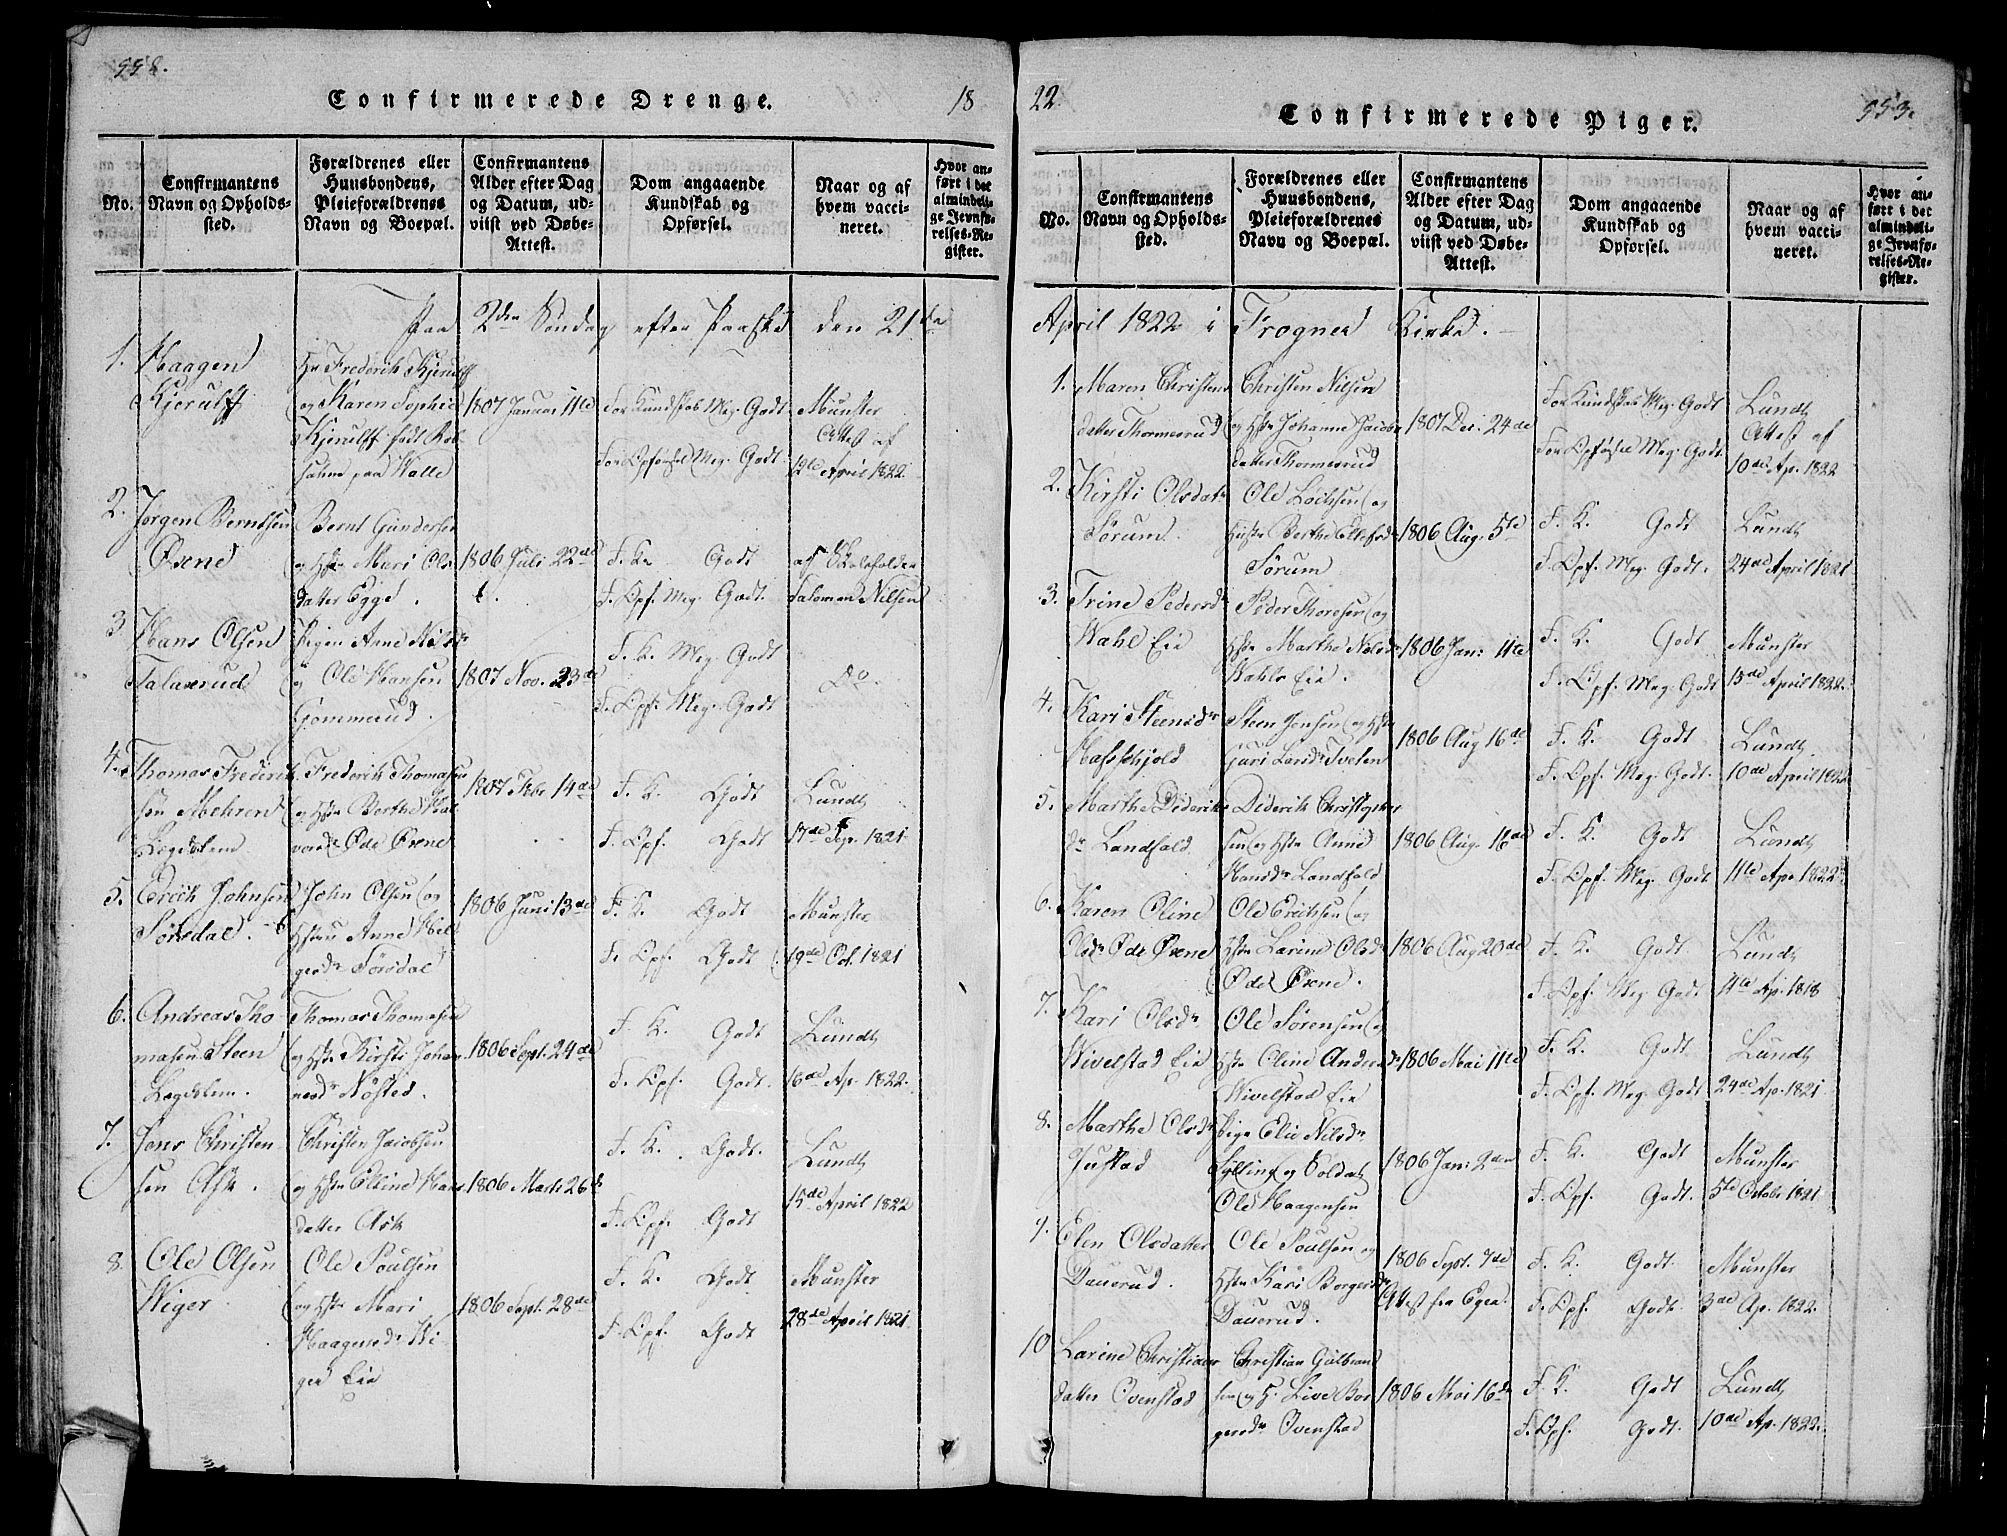 552.
Confirmerede Drenge.
18
No.
Confirmantens Navn og Opholds-sted.
Forældrenes eller Huusbondens, Pleieforældrenes Navn og Boepæl.
Confirmantens Alder efter Dag og Datum, ud-viist ved Døbe-Attest.
Dom angaaende Kundskab og Opførsel.
Naar og af hvem vacci-neret.
Hvor an-ført i det almindeli-ge Jevnfø-relses-Re-gister.
Paa 2den Søndag efter Paaske den 21de
1. Haagen
Kjerulff
Hr Frederik Kjerulff
og Karen Sophie
Kjerulff født
paa Walle
1807 Januar 11te
For Kundskab Meg. Godt
For Opførsel Meg. Godt
Munster
Attest af
12te April 1822
2. Jørgen Berntsen
Øxene
Bernt Gundersen
og Hstr Mari Ols
datter Egge.
1806 Juli 22de
F. K. Godt
F. Opf. Meg. Godt.
af Skoleholder
Salomon Nilsen
3 Hans Olsen
Talaxerud
Pigen Anne Nilsdr
og Ole Hansen
Gommerud.
1807 Nov. 23de
F. K. Meg. Godt
F. Opf. Meg. Godt
Do.
4. Thomas Frederik
sen Mehren
Frederik Thomasen
og Hstr Berthe Hal
vorsdr Øde Øxene
1807 Febr 14de
F. K. Godt
F. Opf. Godt
Lundh
17de Sep. 1821
5. Erick Johnsen
Sørsdal.
John Olsen og
Hstru Anne Hel
gesdr Sørsdal
1806 Juni 13de
F. K. Godt
F. Opf. Godt
Munster
19de Oct. 1821
6. Andreas Tho
masen Steen
Thomas Thomasen
og Hstr Kirsti Johan
nesdr Nøsted.
1806 Sept. 24de
F. K. Godt
F. Opf. Godt.
Lundh
16de Ap. 1822.
7. Jens Christen
sen Ask.
Christen Jacobsen
og Hstr Elline Hans
datter Ask
1806 Marts 26de
F. K. Godt.
F. Opf. Godt
Lundh
15de April 1822
8. Ole Olsen
Wiger
Ole Poulsen
og Hstr Mari
Haagensdr Wi
ger Eie
1806 Sept. 28de
F. K. Godt
F. Opf. Godt
Munster
28de April 1821
22
Confirmerede Piger.
553.
No.
Confirmantens Navn og Opholds-sted.
Forældrenes eller Huusbondens, Pleieforældrenes Navn og Boepæl.
Confirmantens Alder efter Dag og Datum, ud-viist ved Døbe-Attest.
Dom angaaende Kundskab og Opførsel.
Naar og af hvem vacci-neret.
Hvor an-ført i det almindeli-ge Jevnfø-relses-Re-gister.
April 1822 i Trogner Kirke.
1. Maren Christens
datter Thormesrud
Christen Nilsen
og Hstr Johanne Jacobs
datter Thormesrud
1807 Dec. 24de
For Kundskab Meg. Godt
For Opførsel Meg. Godt.
Lundh
Attest af
10de Ap. 1822
2. Kirsti Olsdatr
Sørum.
Ole Loitsen og
Hustr Berthe Ellefsdr
Sørum
1806 Aug. 5te
F. K. Godt
F. Opf. Meg. Godt.
Lundh
24de April 1821
3. Trine Pedersdr
Wahl Eie
Peder Thoresen og
Hstr Marthe Nelsdr
Wahls Eie.
1806 Jan: 11te
F. K. Godt
F. Opf. Meg. Godt
Munster
15de April 1822.
4. Kari Steensdr
Hasskjold
Steen Jensen og Hstr
Guri Larsdr Tveten
1806 Aug 16de
F. K. Godt
F. Opf. Meg. Godt.
Lundh
10de April 1822
5. Marthe Dideriks
dr Landfald
Diderik Christopher
sen og Hstr Anne
Hansdr Landfald
1806 Aug. 16de
F. K. Godt
F. Opf. Meg. Godt
Lundh
11te Ap. 1822
6. Karen Oline
Olsdr Øde Øxene
Ole Ericksen og
Hstr Larine Olsdr
Øde Øxene.
1806 Aug 20de
F. K. Godt
F. Opf. Meg. Godt
Lundh
11te Ap. 1818
7. Kari Olsdr
Wivelstad Eie
Ole Sørensen og
Hstr Oline Anders dr
Wivelstad Eie
1806 Mai 11te
F. K. Godt
F. Opf. Meg. Godt
Lundh
24de Ap. 1821
8. Marthe Olsdr
Justad
Pige Elie Nilsdr
Sylling og Soldat
Ole Haagensen
1806 Jan: 2den
F. K. Godt
F. Opf. Godt.
Munster
5te Octobr 1821
9. Elen Olsdatter
Dauerud.
Ole Poulsen og
Hstr Kari Borgersdr
Dauerud.
1806 Sept. 7de
Attest fra Eger.
F. K. Godt.
F. Opf. Godt.
Munster
3de Ap. 1822.
10 Larine Christians
datter Ovenstad
Christian Gulbrand
sen og H. Live Bor
gersdr Ovenstad
1806 Mai 16de
F. K. Godt
F. Opf. Godt.
Lundh
10de Ap. 1822.